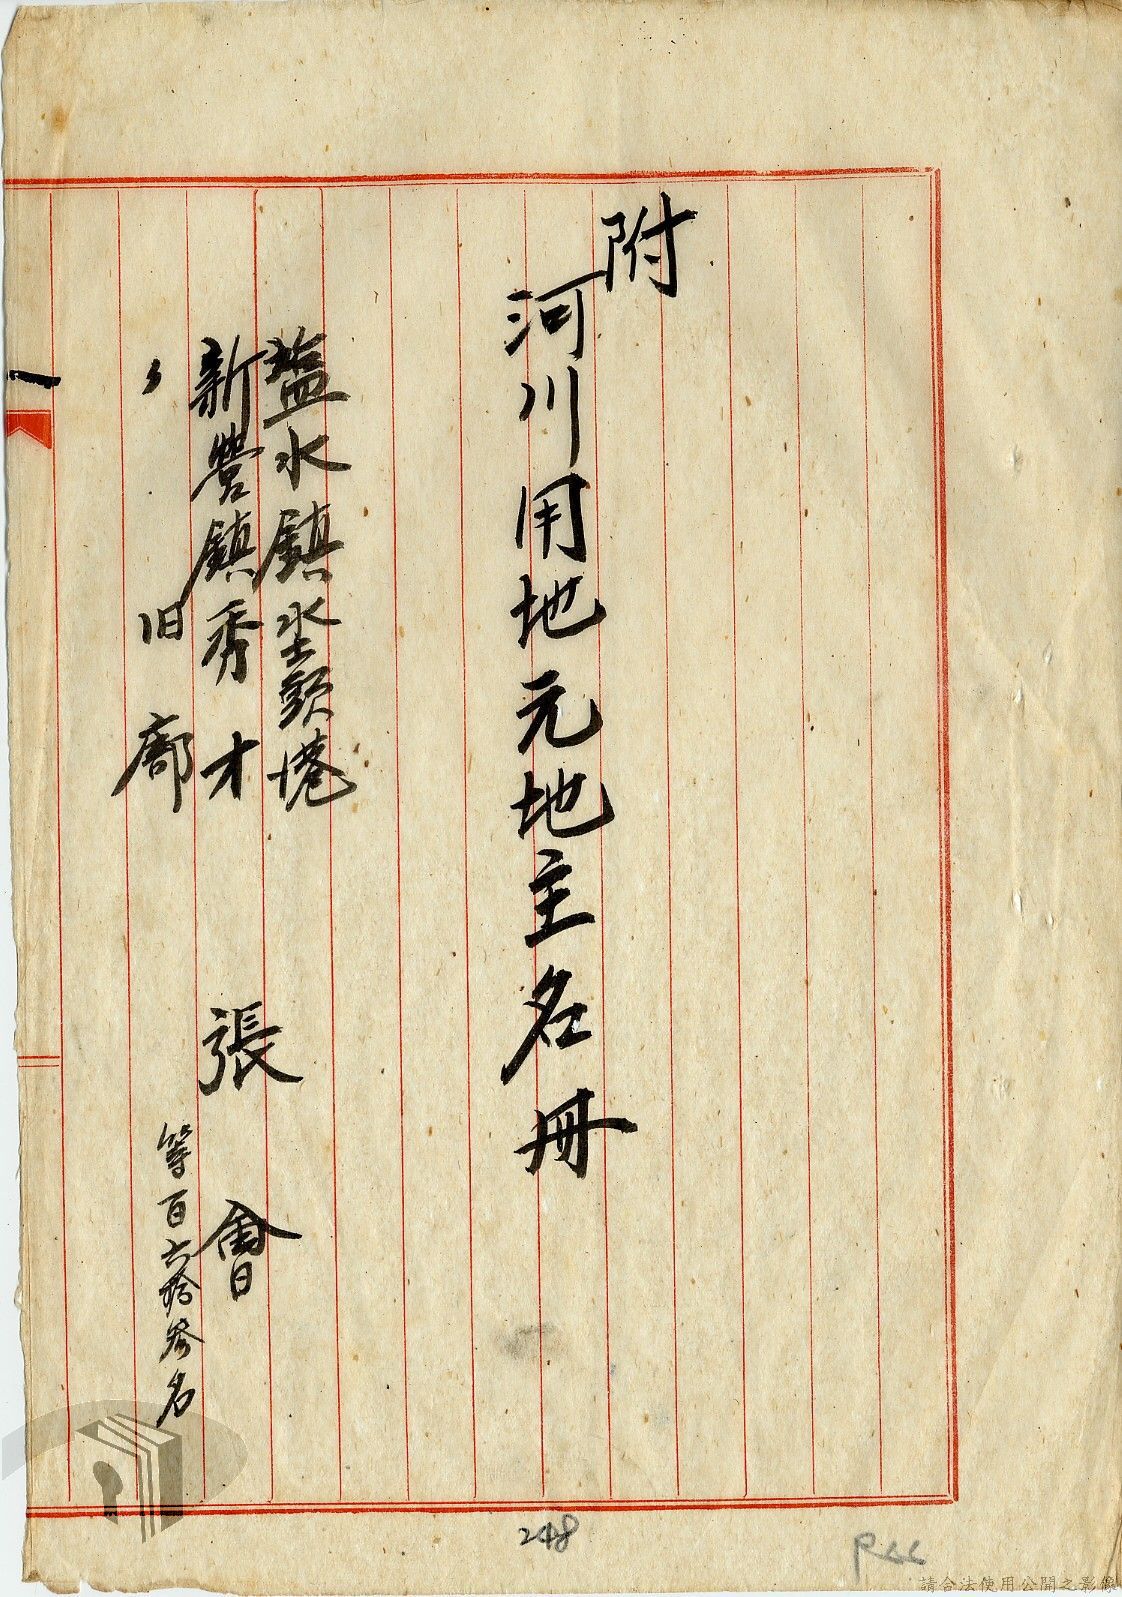 附
河川用地元地主名冊
塩水鎮坔頭港
新營鎮秀才
〃 旧廍
張會
等百六拾參名
248
P66
請合法使用公開之影像